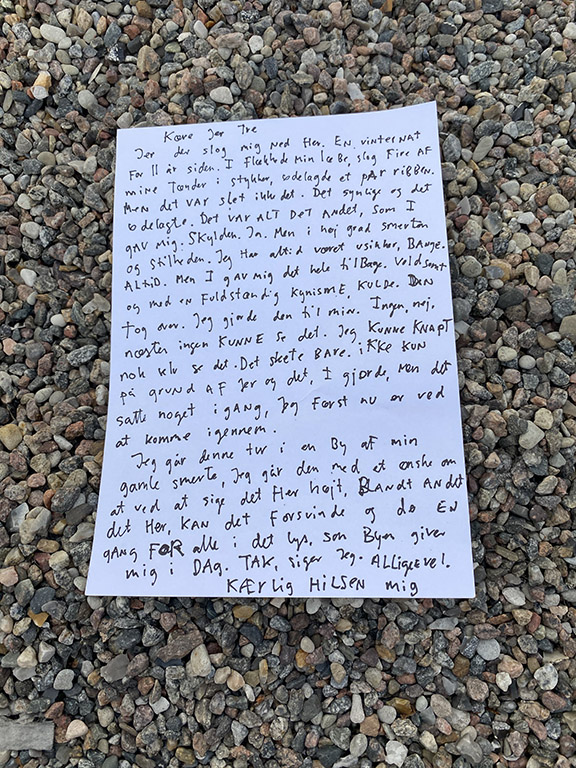 Kære Jer Tre
Jer der slog mig ned Her. EN vinternat
For 11 år siden. I Flækkede Min læbe, slog Fire AF
mine Tænder i stykker, ødelagde et pAr ribben.
Men det var slet ikke det. Det synlige og det
ødelagte. Det VAR ALT DET ANDET, som I
gAV Mig. SKylden. Ja. Men i høj grad smerten
og stilheden. Jeg Har altid været usikker, BAnge.
ALTID. Men I gAv mig det hele tilBage. Voldsomt
og med en Fuldstændig Kynisme, KULDE. DEN
tog over. Jeg gjorde den til min. Ingen, nej,
næsten ingen KUNNE se det. Jeg KUNNE KNAPT
nok selv se det. Det skete BARE. iKKe KUN
på grund AF Jer og det, I gjorde, Men det
satte noget i gANg, Jeg Først nu er ved
at komme igennem.
Jeg går denne tur i en By aF min
gamle smerte, Jeg går den med et ønske om
at ved at sige det Her højt, BLANDT ANDET
det Her, KAN det Forsvinde og dø EN
gANG FOR alle i det lys, som Byen giver
mig i DAg. TAK, siger Jeg. ALLigevel.
KÆRLig HiLSEN mig